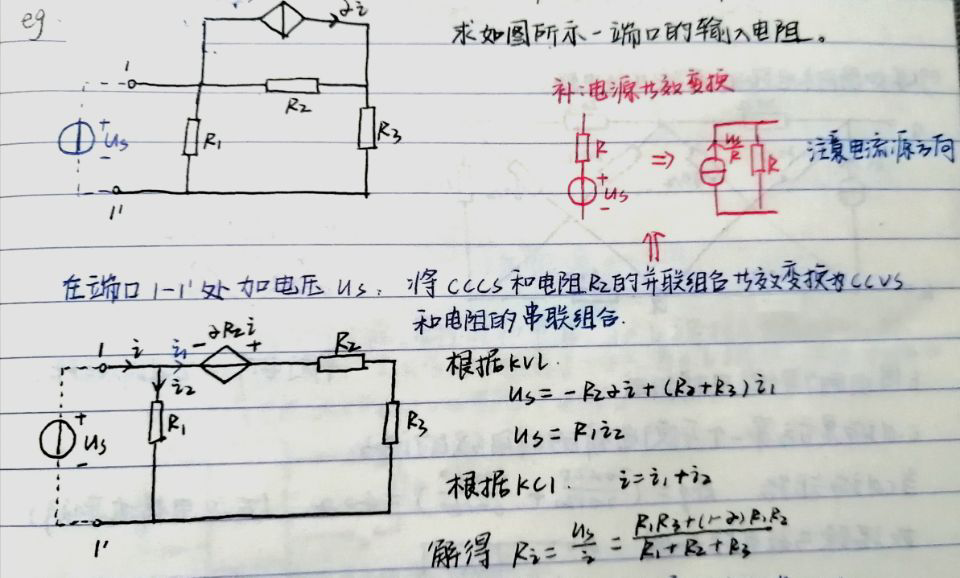 eg
αi
求如图所示一端口的输入电阻。
1
R2
R1
R3
+
us
-
1'
补:电源等效变换
R
+
us
-
⇒
us/R
R
注意电流源方向
⇑
在端口1-1'处加电压us. 将CCCS和电阻R2的并联组合等效变换为CCVS
和电阻的串联组合.
1
i
i1
- αR2i +
R2
i2
R1
R3
+
us
-
1'
根据KVL.
us = -R2αi + (R2+R3)i1
us = R1i2
根据KCL. i = i1+i2
解得 Ri = us/i = (R1R3+(1-α)R1R2)/(R1+R2+R3)